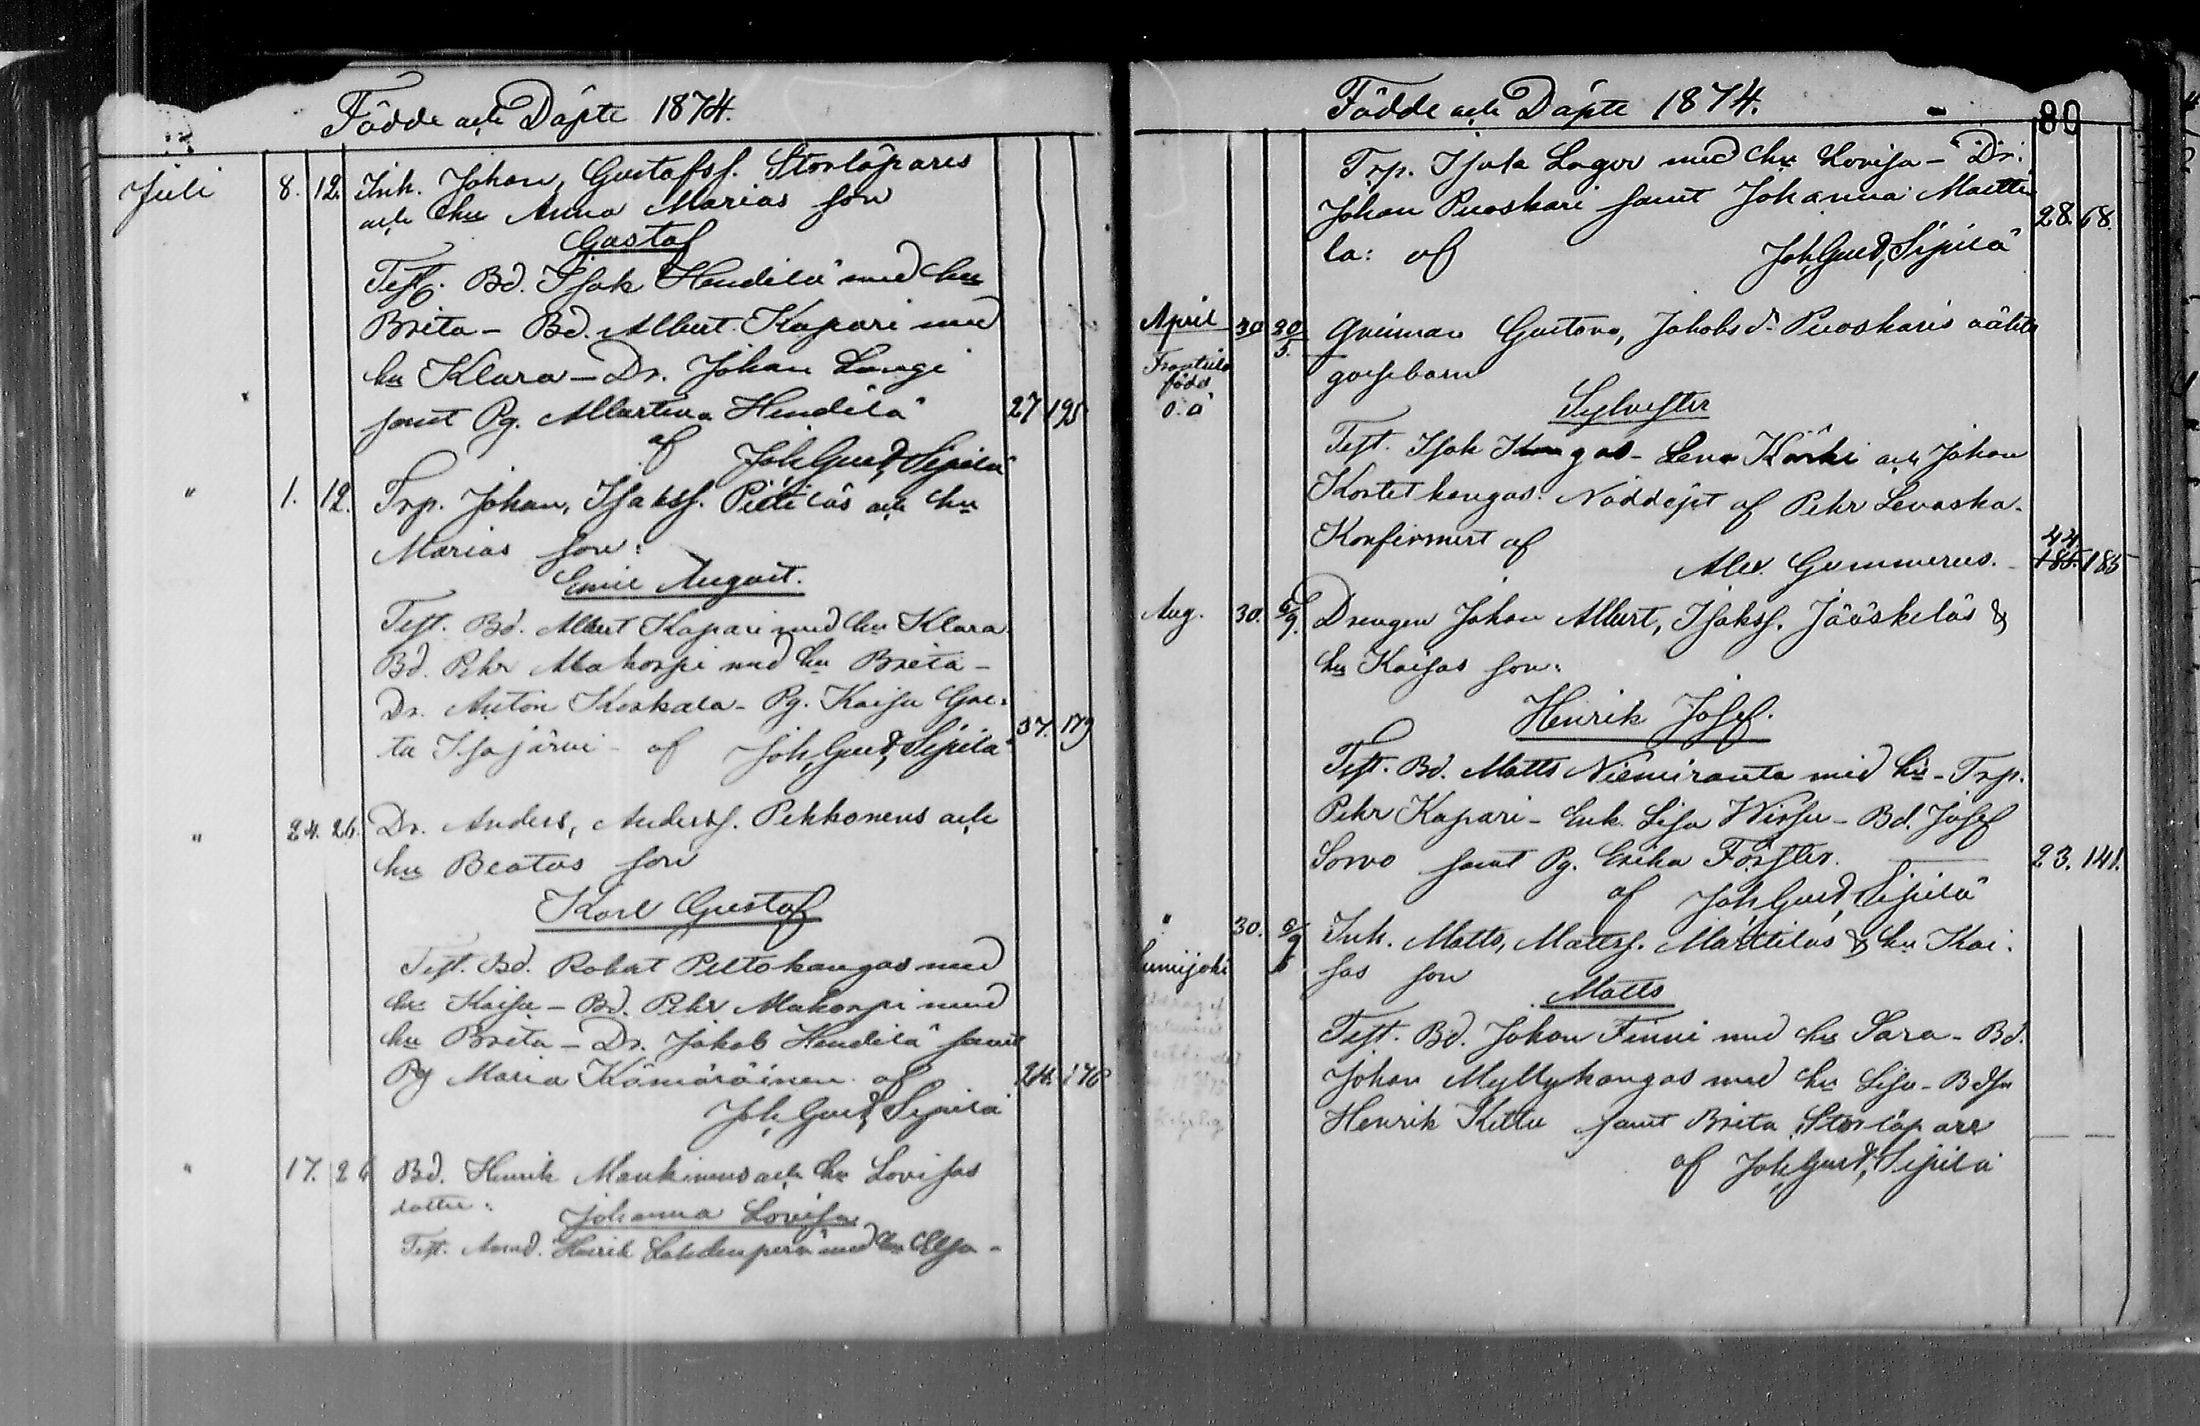 Födde och Döpte 1874.
Juli 8. 12. Inh. Johan, Gustafsf. Storlöpares
och hu Anna Marias son
Gustaf
Test. Bd. Isak Hendilä med hu
Brita - Bd. Albert Kapari med
hu Klara - Dr. Johan Langi
samt Pg. Albertina Hendilä 27 195
af Joh. Gust. Sipilä
" 1. 12. Trp. Johan, Isaksf. Pietiläs och hu
Marias son:
Emil August.
Test. Bd. Albert Kapari med hu Klara
Bd. Pehr Makorpi med hu Brita -
Dr. Anton Koskela - Pg. Kaisa Gre-
ta Isojärvi - af Joh. Gust. Sipilä 37. 179
" 24. 26. Dr. Anders, Andersf. Pekkonens och
hu Beatas son
Karl Gustaf
Test. Bd. Robert Peltokangas med
hu Kaisa - Bd. Pehr Makorpi med
hu Brita - Dr. Jakob Hendilä samt
Pg Maria Kämäräinen af 24. 176
Joh. Gust. Sipilä
" 17. 26 Bd. Henrik Mankinens och hu Lovisas
dotter:
Johanna Lovisa
Test. Henrik med hu Elsa -
Födde och Döpte 1874.
80
Trp. Isak Lager med hu Lovisa - Dr.
Johan Puoskari samt Johanna Martti
la: af Joh. Gust. Sipilä 28. 68.
April 30 20/5. Qvinnan Gustava, Jakobsd. Puoskaris oäkta
Frantsila
född
o. ä
gossebarn
Sylvester
Test. Isak Kangas - Lena Kärki och Johan
Kortetkangas. Nöddöpt af Pehr Levaska.
Konfirmert af Alex. Gummerus. 44. 185. 185
Aug. 30. 6/9. Drengen Johan Albert, Isaksf. Jääskeläs &
hu Kaisas son:
Henrik Josef.
Test. Bd. Matts Niemiranta med hu - Trp.
Pehr Kapari - Enk. Lisa Wirsu - Bd. Josef
Sorvo samt Pg. Erika Forstler. 23. 141.
af Joh. Gust. Sipilä
" 30. 6/9 Inh. Matts, Mattsf. Marttilas & hu Kai-
Lumijoki
sas son
Matts
Test. Bd. Johan Finni med hu Sara - Bd.
Johan Myllykangas med hu Lisa - Bdsn
Henrik Kittu samt Brita Storlöpare
af Joh. Gust. Sipilä